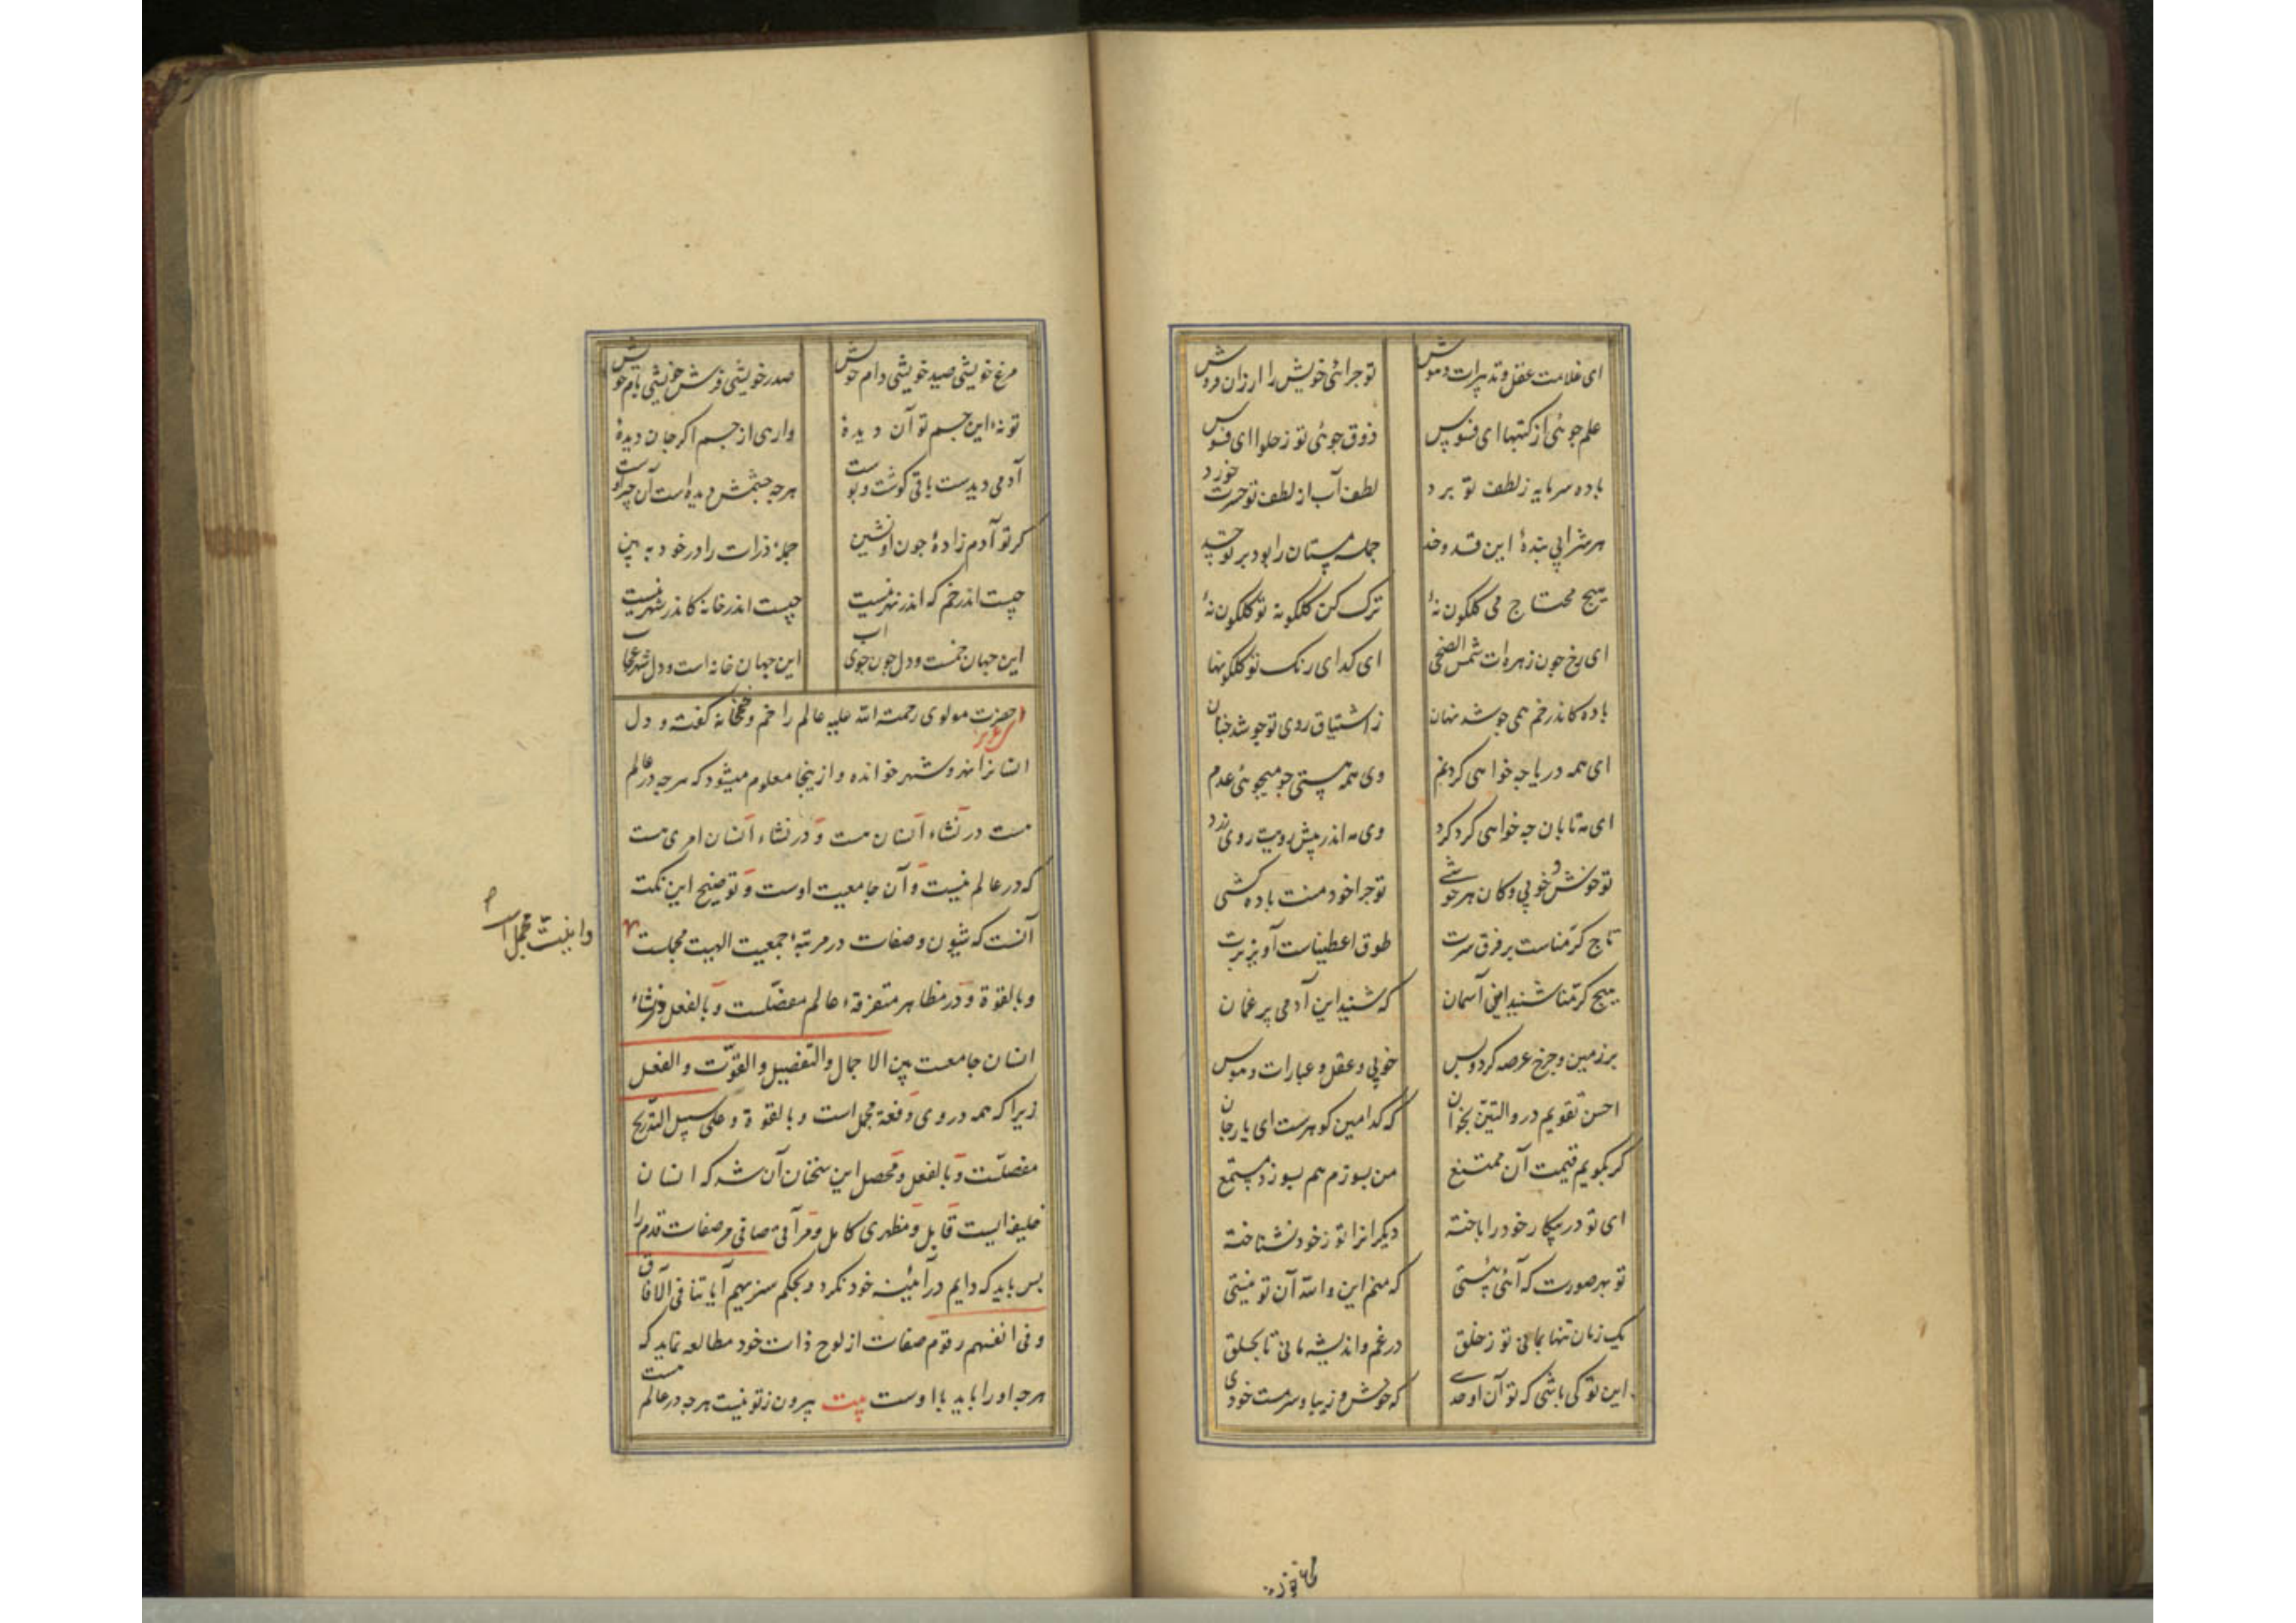 ای غلامت عقل و تدبیرات و هوش تو چرائی خویش را ارزان فروش
علم جوئی از کتبها ای فسوس ذوق جوئی تو ز حلوا ای فسوس
باده سرمایه ز لطف تو برد لطف آب از لطف تو حسرت خورد
هر شرابی بندهٔ این قد و خد جمله مستان را بود بر تو حسد
هیچ محتاج می گلگون نهٔ ترک کن گلگونه تو گلگون نهٔ
ای رخ چون زهره‌ات شمس الضحی ای گدای رنگ تو گلگونها
باده کاندر خم همی جوشد نهان ز اشتیاق روی تو جوشد چنان
ای همه دریا چه خواهی کرد نم وی همه هستی چه میجوئی عدم
ای مه تابان چه خواهی کرد گرد وی مه اندر پیش رویت روی زرد
تو خوش و خوبی و کان هر خوشی تو چرا خود منت باده کشی
تاج کرّمناست بر فرق سرت طوق اعطیناست آویز برت
هیچ کرّمنا شنید این آسمان که شنید این آدمی پر غمان
بر زمین و چرخ عرضه کرد و بس خوبی و عقل و عبارات و هوس
احسن تقویم در والتین بخوان که کدامین گوهرست ای یار جان
گر بگویم قیمت آن ممتنع من بسوزم هم بسوزد مستمع
ای تو در پیکار خود را باخته دیگرانرا تو ز خود نشناخته
تو بهر صورت که آئی بیستی که منم این والله آن تو نیستی
یک زمان تنها بمانی تو ز خلق در غم و اندیشه مانی تا بحلق
این تو کی باشی که تو آن اوحدی که خوش و زیبا و سرمست خودی
مرغ خویشی صید خویشی دام خویش صدر خویشی فرش خویشی بام خویش
تو نهٔ این جسم تو آن دیدهٔ وارهی از جسم اگر جان دیدهٔ
آدمی دیدست باقی گوشت و پوست هرچه چشمش دیده است آن چیز اوست
گر تو آدم زادهٔ چون او نشین جملهٔ ذرات را در خود ببین
چیست اندر خم که اندر نهر نیست چیست اندر خانه کاندر شهر نیست
این جهان خمست و دل چون جوی آب این جهان خانه است و دل شهر عجاب
حضرت مولوی رحمت الله علیه عالم را خم و خمخانه گفته و دل
انسانرا نهر و شهر خوانده و ازینجا معلوم میشود که هرچه در عالم
هست در نشاء انسان هست و در نشاء انسان امری هست
که در عالم نیست و آن جامعیت اوست و توضیح این نکت
آنست که شیون و صفات در مرتبهٔ جمعیت الهیت مجملست
وا نیت مجمل است
و بالقوة و در مظاهر متفرقهٔ عالم مفصّلست و بالفعل و نشاء
انسان جامعست بین الاجمال والتفضیل والقوّت والفعل
زیرا که همه در وی دفعة مجمل است و بالقوة و علی سبیل التدریج
مفصلست و بالفعل و محصل این سخنان آن شد که انسان
خلیفه ایست قابل و مظهری کامل و مرآتی صافی مر صفات قدم را
پس باید که دایم در آئینه خود نگرد و بحکم سنریهم آیاتنا فی الآفاق
و فی انفسهم رقوم صفات از لوح ذات خود مطالعه نماید که
هرچه او را باید با اوست بیت بیرون ز تو نیست هرچه در عالم هست